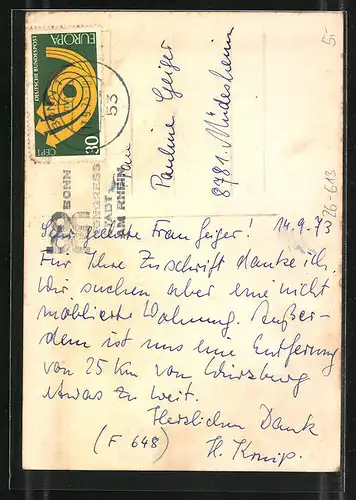 EUROPA
DEUTSCHE BUNDESPOST
CEPT
30
53
BONN
KONGRESS
STADT
AM RHEIN
Frau
Pauline Geiger
8781 Mädesheim
5,-
26-613
14.9.73
Sehr geehrte Frau Geiger!
Für Ihre Zuschrift danke ich.
Wir suchen aber eine nicht
möblierte Wohnung. Außer-
dem ist uns eine Entfernung
von 25 Km von Würzburg
etwas zu weit.
Herzlichen Dank
(F 648)
H.